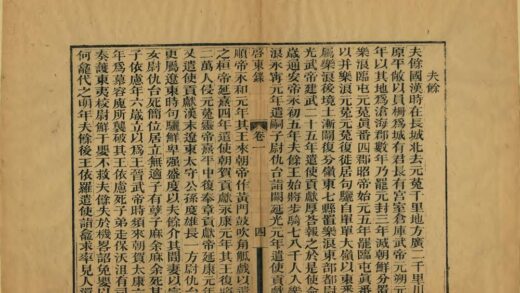 夫餘
夫餘國漢時在長城北去元菟千里地方廣二千里川
原平敞以員柵爲城有君長有宮室倉庫武帝元朔元
年以其地爲滄海郡數年乃罷元封三年滅朝鮮分
樂浪臨屯元菟眞番四郡昭帝始元五年罷臨屯眞番
以并樂浪元菟元菟復徙居句驪自單單大嶺以東悉
屬樂浪後境土漸闊復分嶺東七縣置樂浪東部都尉
光武帝建武二十五年遣使貢獻厚答報之於是使命
歲通安帝永初五年夫餘王始將步騎七八千人
浪永寧元年遣嗣子尉仇台詣闕延光元年遣
啓東錄 卷一 四
順帝永和元年其王來朝帝作黃門鼓吹角觝戲以遣
之桓帝延熹四年遣使朝貢獻永康元年其王復將
二萬人侵元菟靈帝嘉平中復奉章貢獻帝延康元年
又遣使貢獻漢末遼東太守公孫度雄長一方尉仇台
更屬遼東時句驪鮮卑强盛度以夫餘介其間妻以宗
女尉仇台死簡位居立無適子有孽子麻余麻余死其
子依慮年六歲立以爲王晉武帝時頻來朝貢太康
年爲慕容廆所襲破其王依慮死子弟走保沃沮有司
奏護東夷校尉鮮于嬰不救夫餘失於機畧詔免嬰以
何龕代之明年夫餘後王依羅遣使詣龕求率見人還